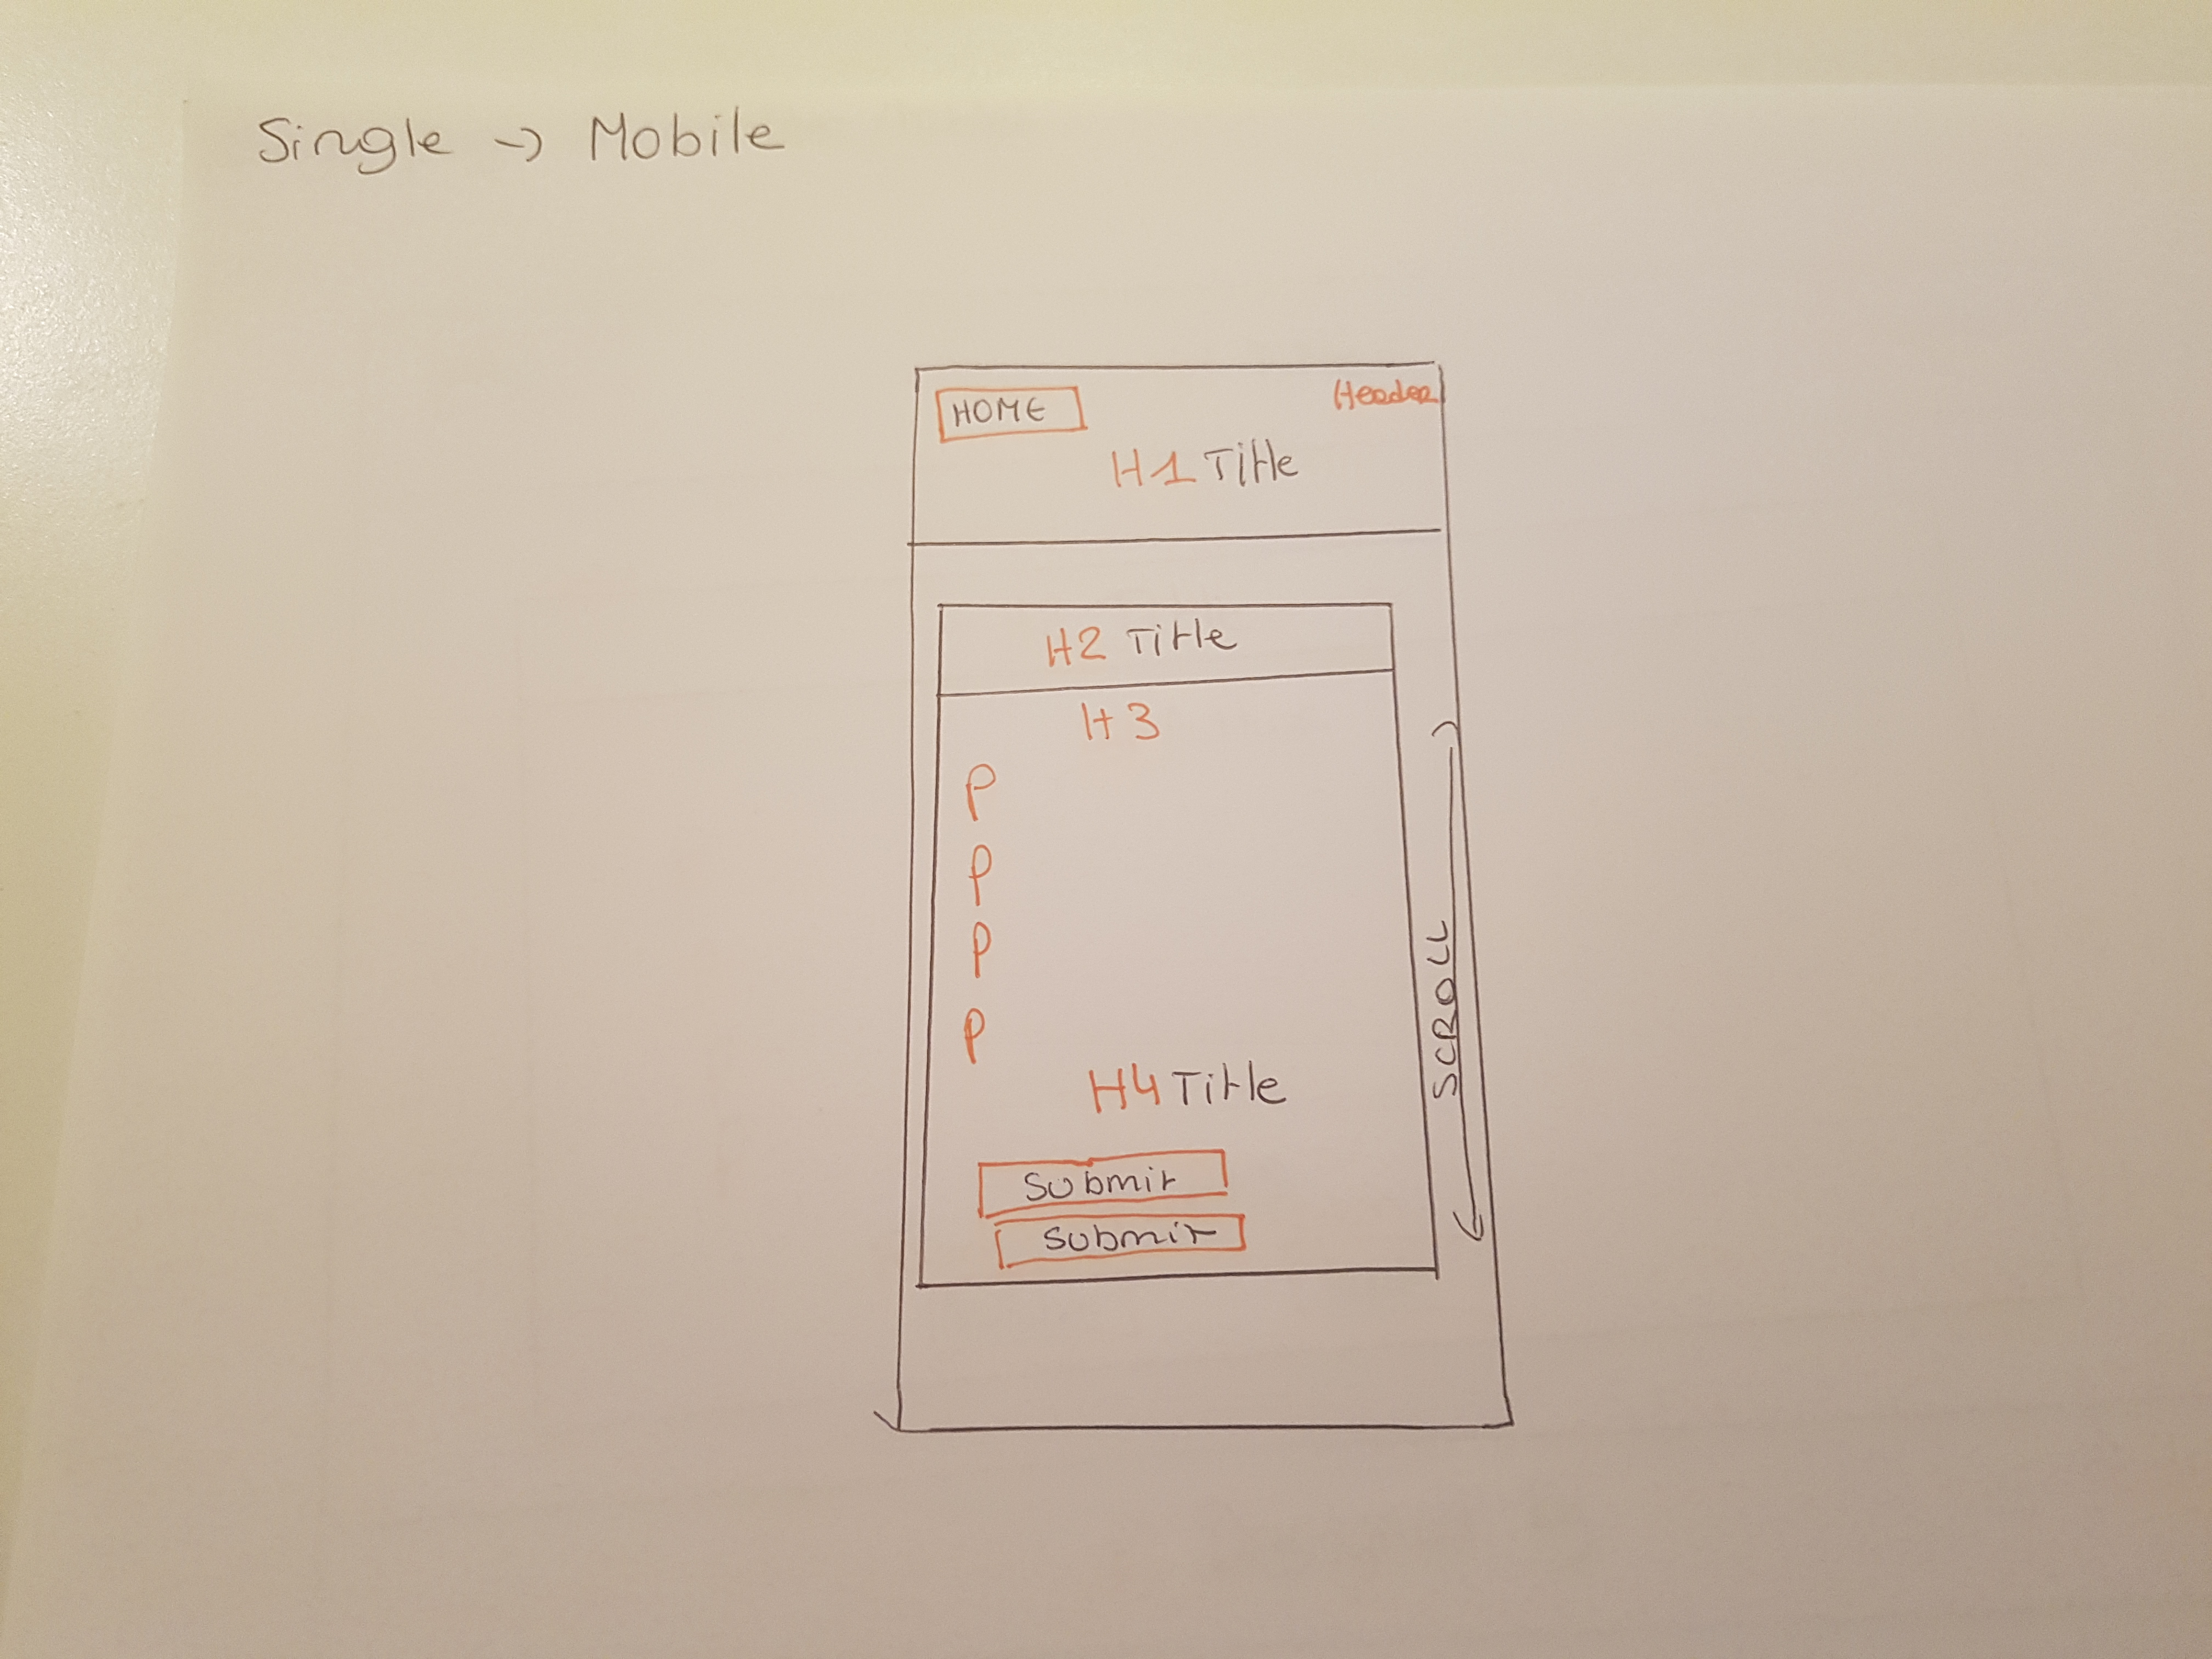 Single → Mobile
HOME
Header
H1 Title
H2 Title
H3
P
P
P
P
H4 Title
Submit
Submit
SCROLL